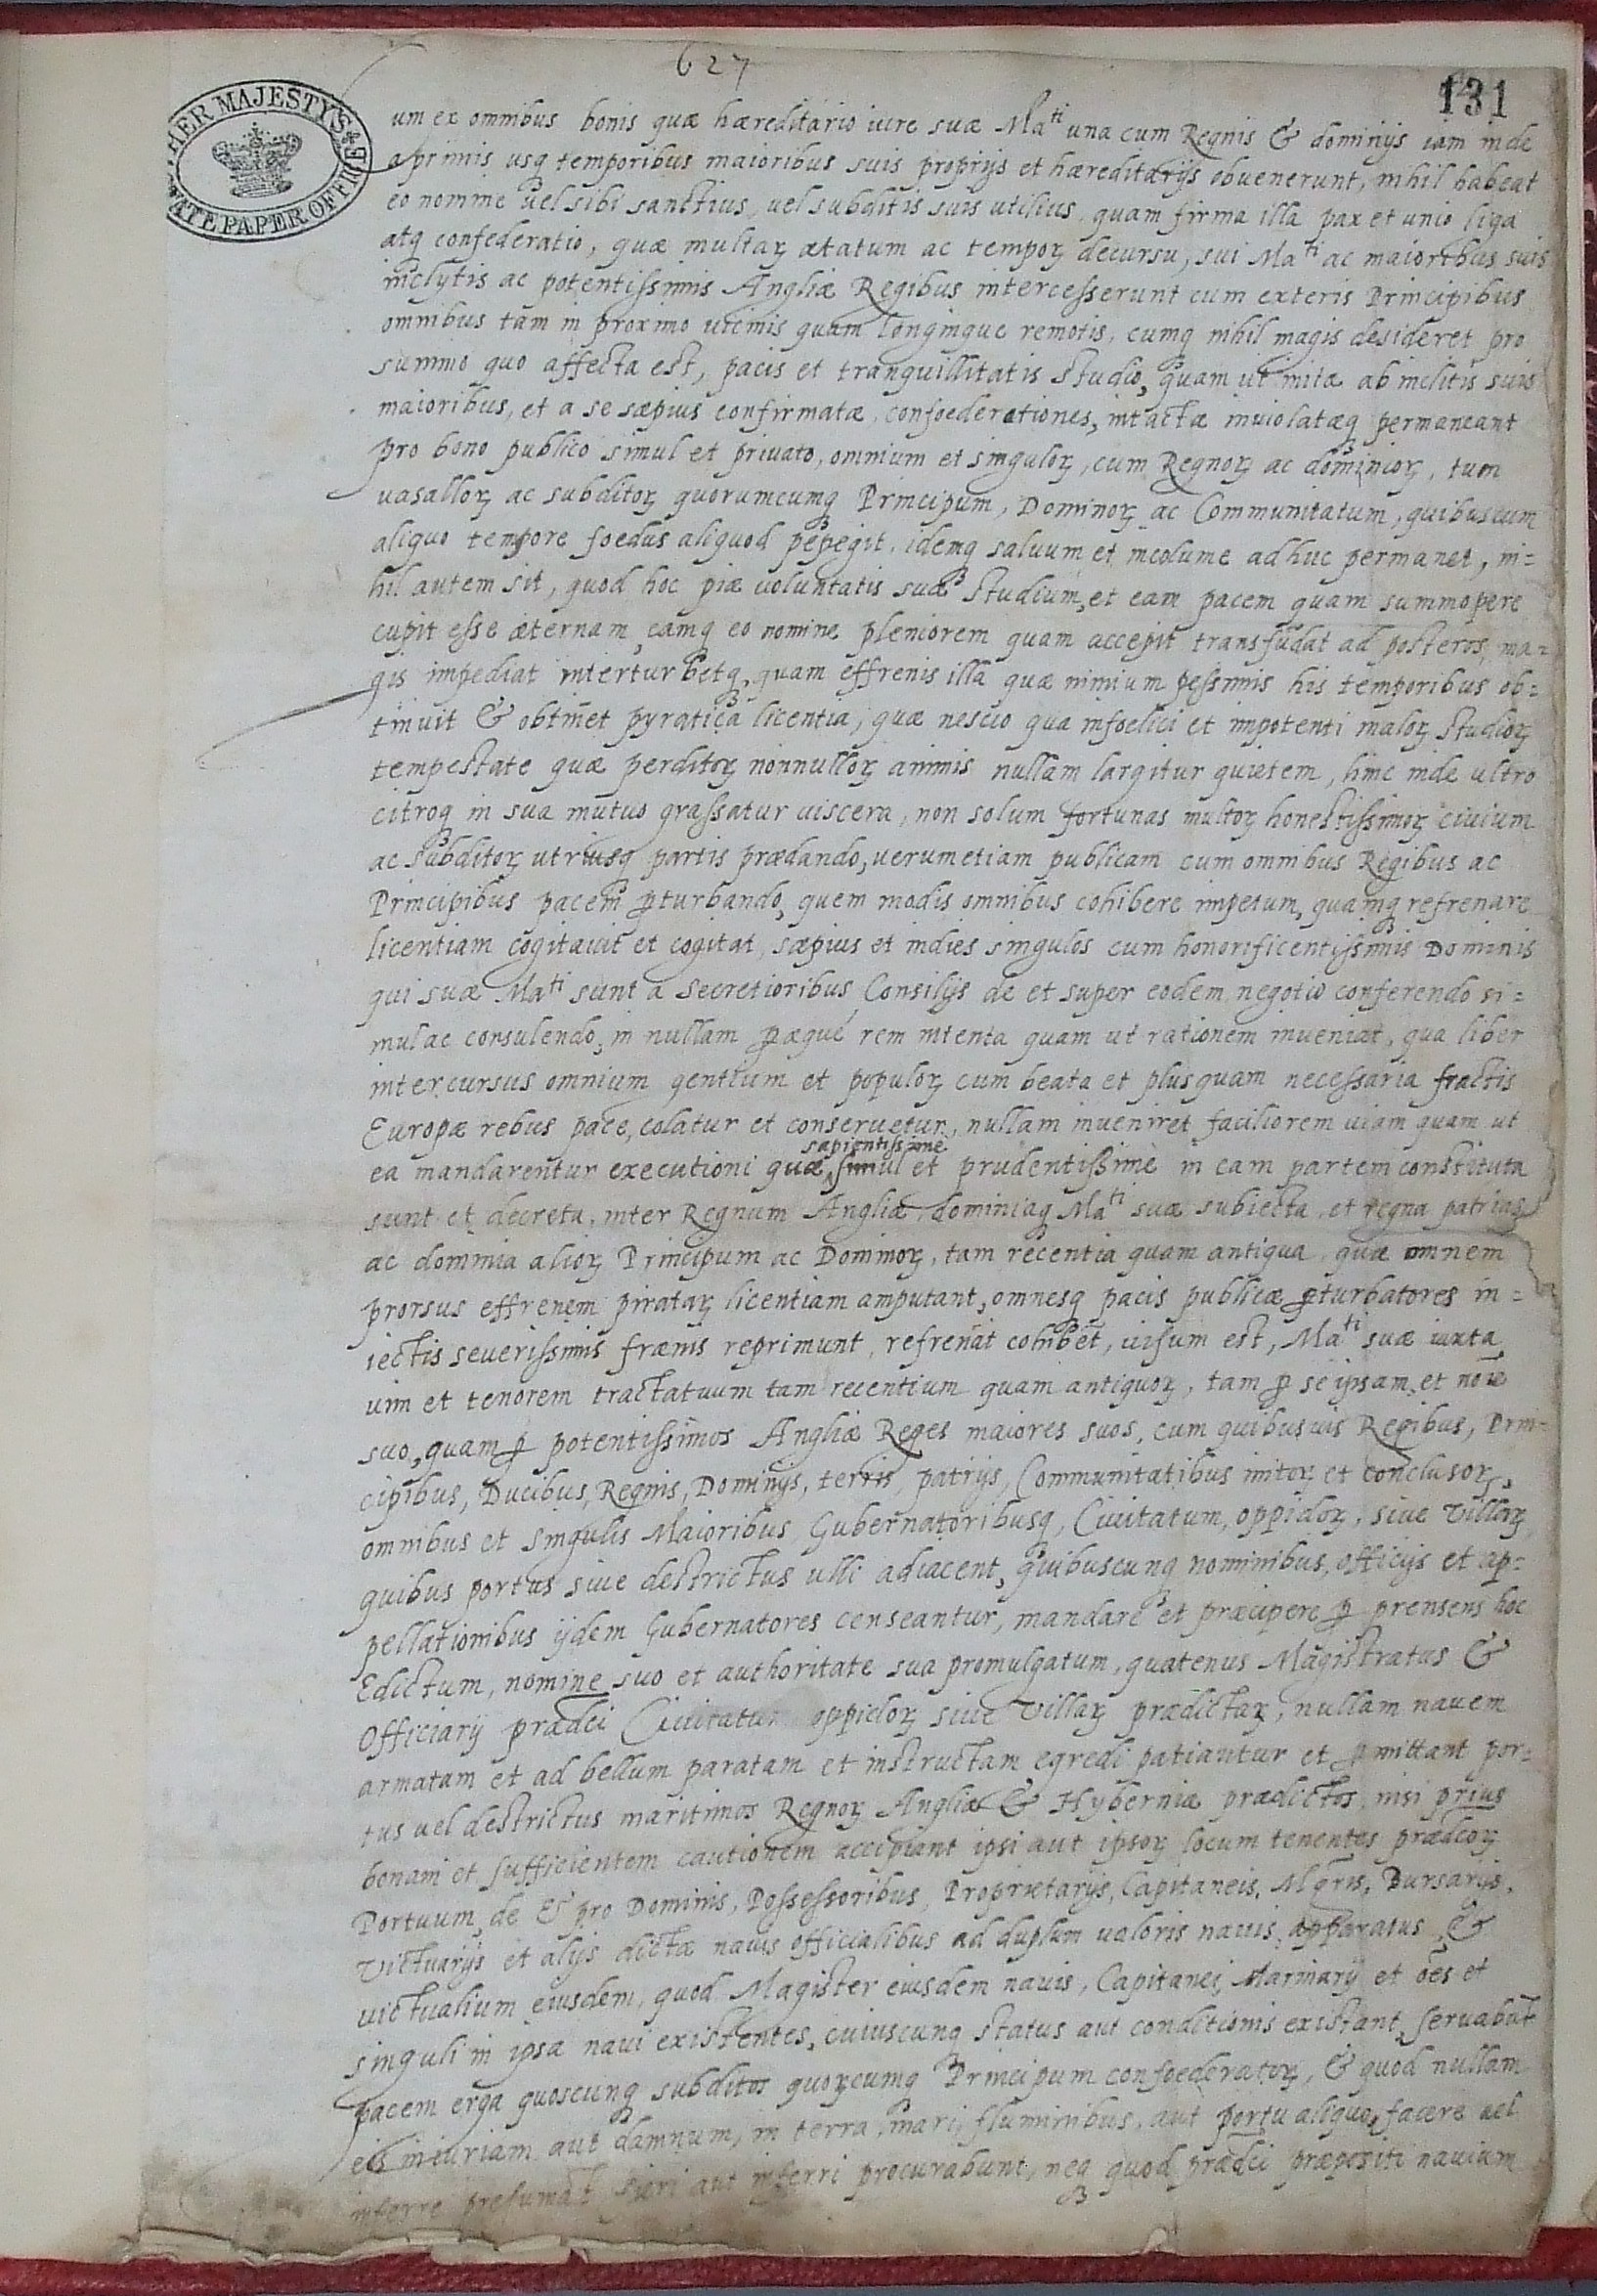 627
131
HER MAJESTY'S
STATE PAPER OFFICE
um ex omnibus bonis quæ hæreditario iure suæ Ma^ti una cum Regnis & dominijs iam inde
a primis usq temporibus maioribus suis proprijs et hæreditarijs obvenerunt, nihil habeat
eo nomine vel sibi sanctius, vel subditis suis utilius, quam firma illa pax et unio liga
atq confederatio, quæ multaꝝ ætatum ac tempoꝝ decursu, sui Ma^ti ac maioribus suis
inclytis ac potentissimis Angliæ Regibus intercesserunt cum exteris Principibus
omnibus tam in proximo vicinis quam longinque remotis, cumq nihil magis desideret pro
summo quo affecta est, pacis et tranquillitatis studio, quam ut initæ ab inclitis suis
maioribus, et a se sæpius confirmatæ confoederationes, intactæ inviolatæq permaneant
pro bono publico simul et privato, omnium et singuloꝝ, cum Regnoꝝ ac dominioꝝ, tum
vasalloꝝ ac subditoꝝ quorumcumq Principum, Dominoꝝ ac Communitatum, quibuscum
aliquo tempore foedus aliquod pepegit, idemq saluum et incolume adhuc permanet, ni=
hil autem sit, quod hoc piæ voluntatis suæ studium, et eam pacem quam summopere
cupit esse æternam, eamq eo nomine pleniorem quam accepit transfudat ad posteros, ma=
gis impediat interturbetq, quam effrenis illa quæ nimium pessimis his temporibus ob=
tinuit & obtinet pyratica licentia, quæ nescio qua infoelici et impotenti maloꝝ studioꝝ
tempestate quæ perditoꝝ nonnulloꝝ animis nullam largitur quietem, hinc inde ultro
citroq in sua mutuo grassatur viscera, non solum fortunas multoꝝ honestissimoꝝ civium
ac subditoꝝ utriusq partis prædando, verumetiam publicam cum omnibus Regibus ac
Principibus pacem ꝑturbando, quem modis omnibus cohibere impetum, quamq refrenare
licentiam cogitavit et cogitat, sæpius et indies singulos cum honorificentissimis Dominis
qui suæ Ma^ti sunt a Secretioribus Consilijs de et super eodem negotio conferendo si=
mul ac consulendo, in nullam ꝑæque rem intenta quam ut rationem inveniat, qua liber
intercursus omnium gentium et populoꝝ cum beata et plusquam necessaria fractis
Europæ rebus pace, colatur et conservetur, nullam inveniret faciliorem viam quam ut
sapientissime
ea mandarentur executioni quæ simul et prudentissime in eam partem constituta
sunt et decreta, inter Regnum Angliæ, dominiaq Ma^ti suæ subiecta, et regna patrias
ac dominia alioꝝ Principum ac Dominoꝝ, tam recentia quam antiqua, quæ omnem
prorsus effrenem pirataꝝ licentiam amputant, omnesq pacis publicæ ꝑturbatores in=
iectis severissimis frænis reprimunt, refrenāt cohibēt, visum est, Ma^ti suæ iuxta
vim et tenorem tractatuum tam recentium quam antiquoꝝ, tam ꝑ se ipsam, et noīe
suo, quam ꝑ potentissimos Angliæ Reges maiores suos, cum quibusvis Regibus, Prin=
cipibus, Ducibus, Regnis, Dominijs, terris, patrijs, Communitatibus initoꝝ et conclusoꝝ,
omnibus et singulis Maioribus Gubernatoribusq, Civitatum, oppidoꝝ, sive Villaꝝ
quibus portus sive destrictus ulli adiacent, quibuscunq nominibus, officijs et ap=
pellationibus ijdem Gubernatores censeantur, mandare et præcipere ꝑ prensens hoc
Edictum, nomine suo et authoritate sua promulgatum, quatenus Magistratus &
Officiarij prædci Civitatum oppidoꝝ sive Villaꝝ prædictaꝝ, nullam navem
armatam et ad bellum paratam et instructam egredi patiantur et ꝑmittant por=
tus vel destrictus maritimos Regnoꝝ Angliæ & Hyberniæ prædictos, nisi prius
bonam et sufficientem cautionem accipiant ipsi aut ipsoꝝ locum tenentes prædcoꝝ
Portuum, de & pro Dominis, Possessoribus, Proprietarijs, Capitaneis, Mgris, Bursarijs,
Victuarijs et alijs dictæ navis officialibus ad duplum valoris navis, apparatus, &
victualium eiusdem, quod Magister eiusdem navis, Capitanei, Marinarij et oēs et
singuli in ipsa navi existentes, cuiuscunq status aut conditionis existant, servabūt
pacem erga quoscunq subditos quoꝝcumq Principum confoederatoꝝ, & quod nullam
eis iniuriam aut damnum, in terra, mari, fluminibus, aut portu aliquo, facere vel
inferre presumāt, fieri aut inferri procurabunt, neq quod prædci præpositi navium